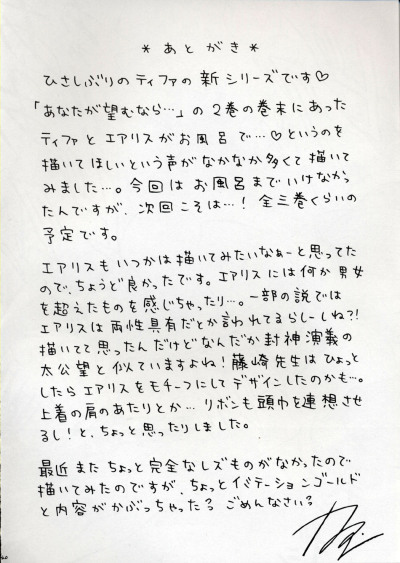 ＊あとがき＊
ひさしぶりのティファの新シリーズです♡
「あなたが望むなら…」の2巻の巻末にあった
ティファとエアリスがお風呂で…♡というのを
描いてほしいという声がなかなか多くて描いて
みました…。今回はお風呂までいけなかっ
たんですが、次回こそは…！全三巻くらいの
予定です。
エアリスもいつかは描いてみたいなぁーと思ってた
ので、ちょうど良かったです。エアリスには何か男女
を超えたものを感じちゃったり…。一部の説では
エアリスは両性具有だとか言われてるらしーしね？！
描いてて思ったんだけどなんだか封神演義の
太公望と似ていますよね！藤崎先生はひょっと
したらエアリスをモチーフにしてデザインしたのかも…。
上着の肩のあたりとか…リボンも頭巾を連想させ
るし！と、ちょっと思ったりしました。
最近またちょっと完全なレズものがなかったので
描いてみたのですが、ちょっとイミテーションゴールド
と内容がかぶっちゃった？ごめんなさい？